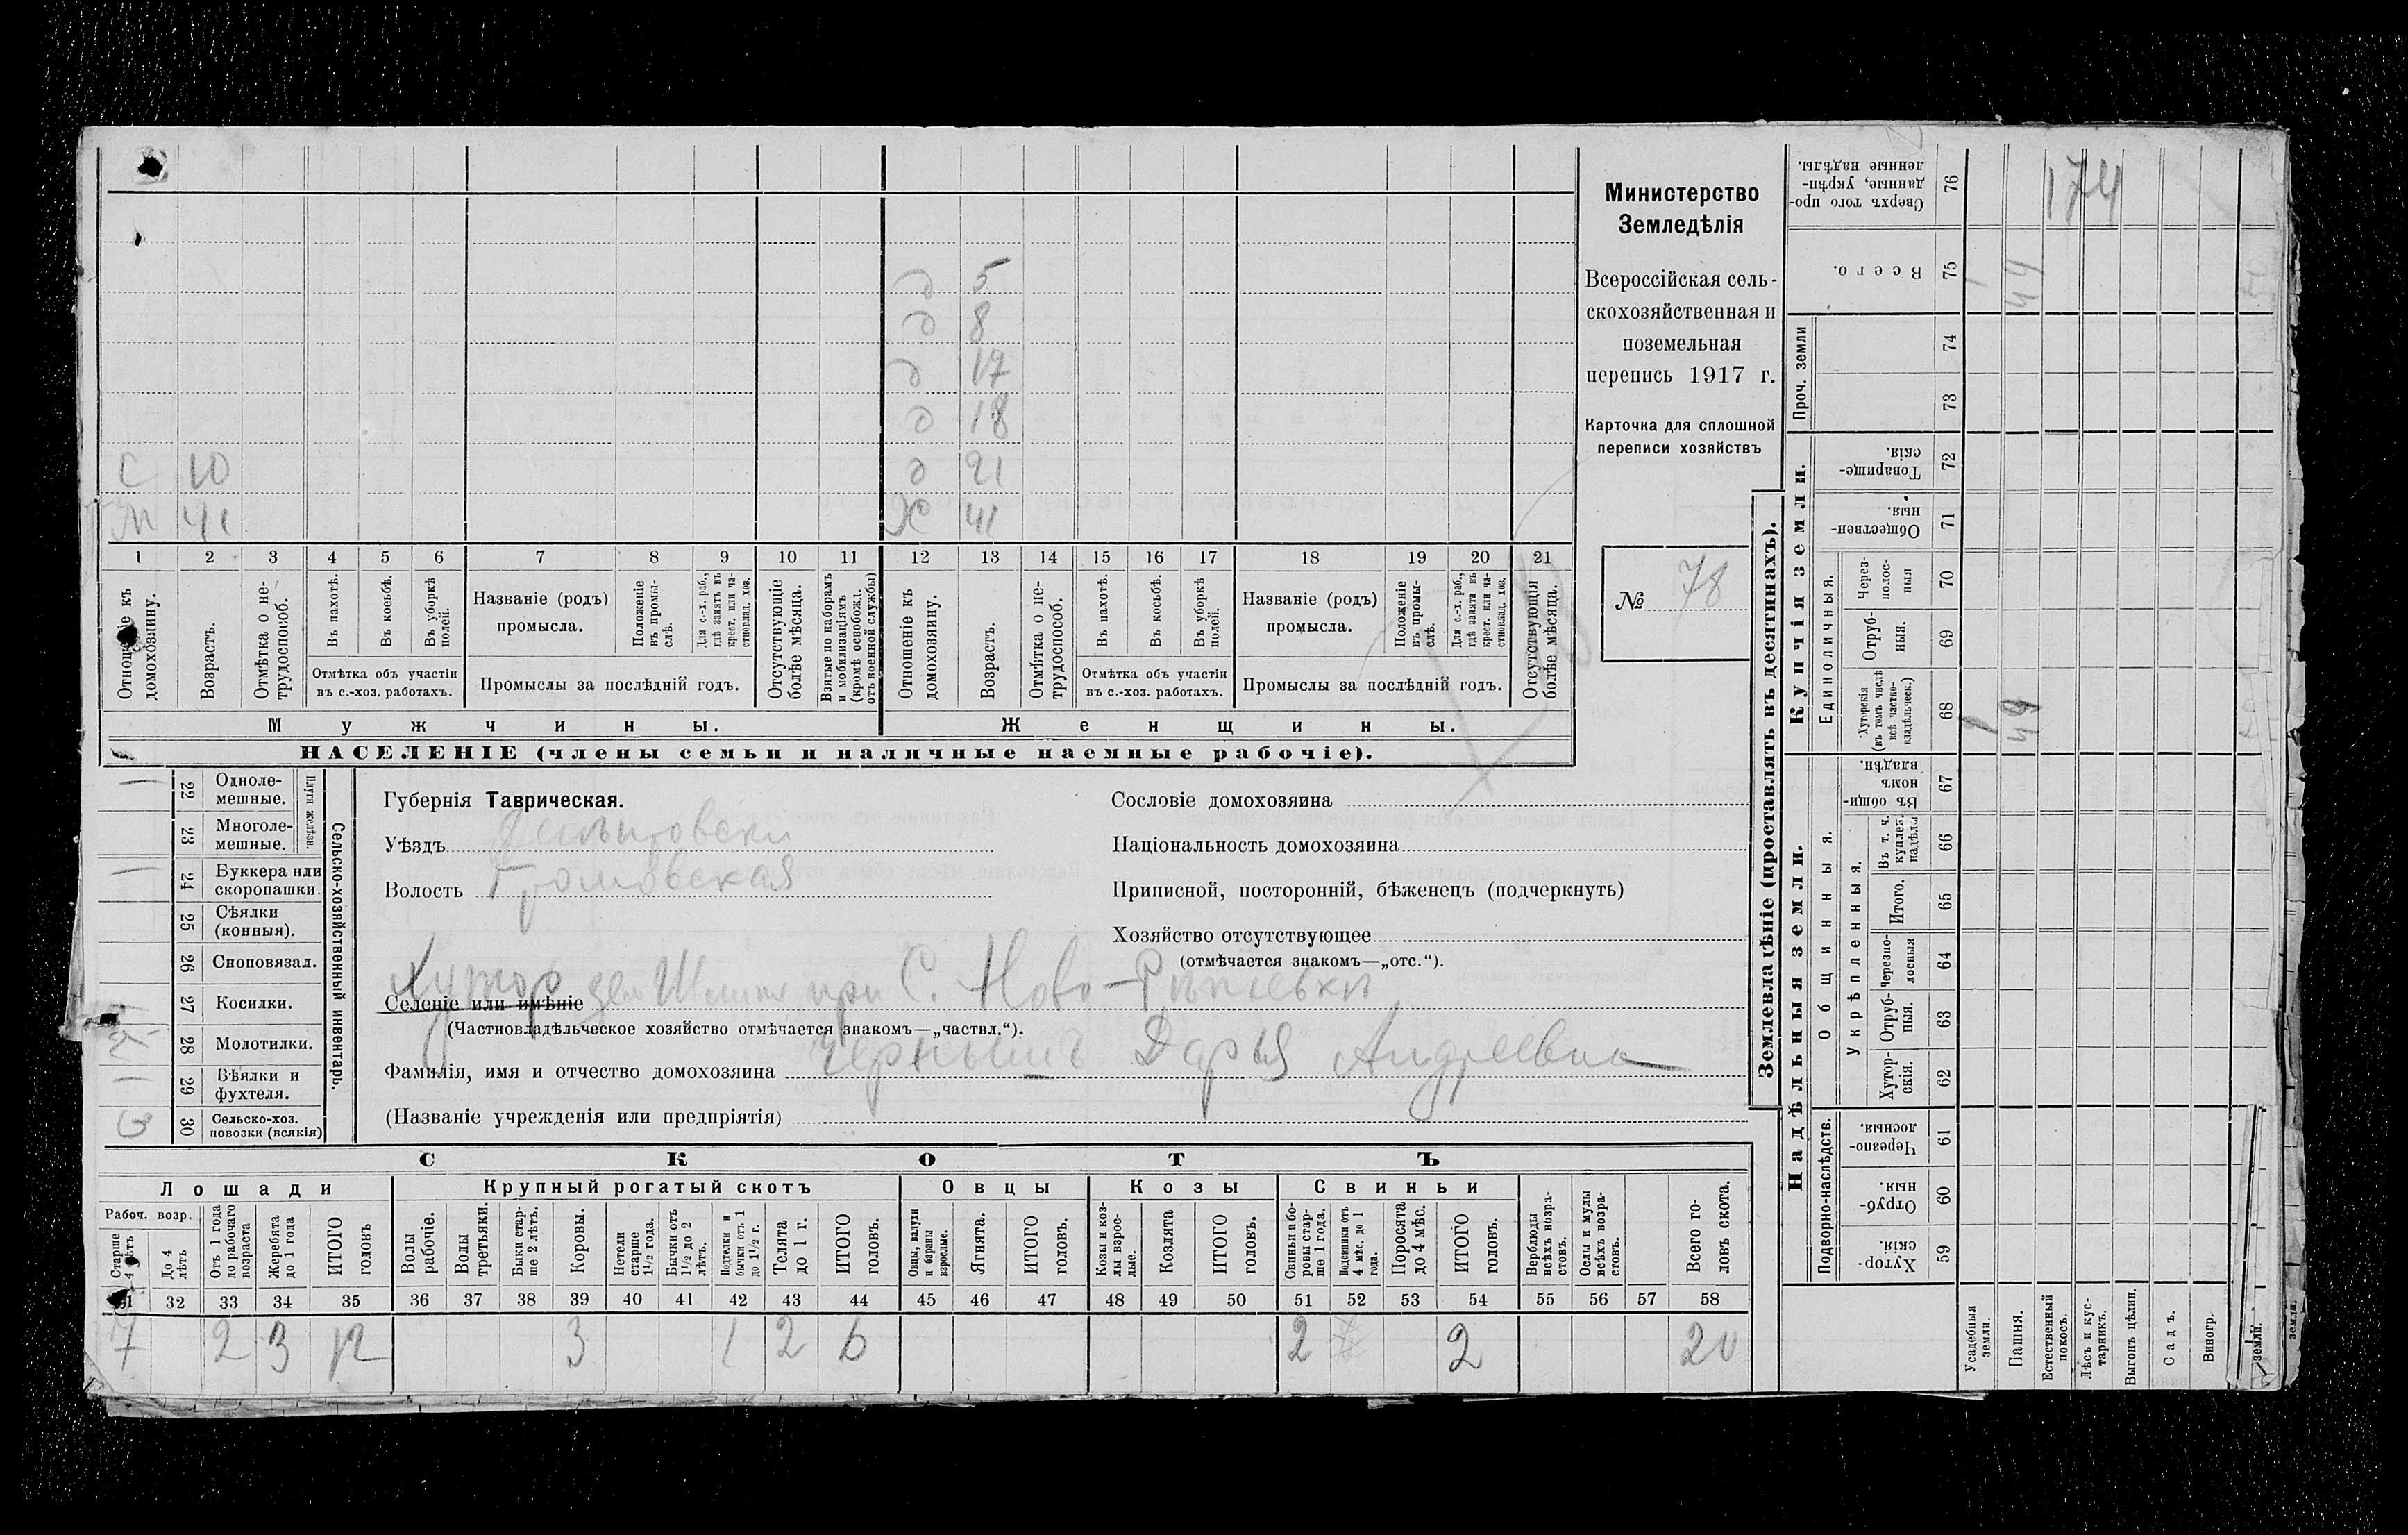 5
8
17
18
С 10
21
М 41
Ж 41
1 2 3 4 5 6 7 8 9 10 11 12 13 14 15 16 17 18 19 20 21
Отношеніе къ домохозяину.
Возрастъ.
Отмѣтка о не-
трудоспособ.
Въ пахотѣ.
Въ косьбѣ.
Въ уборкѣ полей.
Отмѣтка объ участіи
въ с.-хоз. работахъ.
Названіе (родъ)
промысла.
Положеніе въ промы-
слѣ.
Для с.-х. раб.,
гдѣ занятъ въ
крест. или ча-
стновлад. хоз.
Промыслы за послѣдній годъ.
Отсутствующіе
болѣе мѣсяца.
Взятые по наборамъ
и мобилизаціямъ
(кромѣ освобожд.
отъ военной службы)
Отношеніе къ
домохозяину.
Возрастъ.
Отмѣтка о не-
трудоспособ.
Въ пахотѣ.
Въ косьбѣ.
Въ уборкѣ полей.
Отмѣтка объ участіи
въ с.-хоз. работахъ.
Названіе (родъ)
промысла.
Положеніе
въ промы-
слѣ.
Для с.-х. раб.,
гдѣ занята въ
крест. или ча-
стновлад. хоз.
Промыслы за послѣдній годъ.
Отсутствующія
болѣе мѣсяца.
Мужчины.
Женщины.
НАСЕЛЕНІЕ (члены семьи и наличные наемные рабочіе).
Министерство
Земледѣлія
Всероссійская сель-
скохозяйственная и
поземельная
перепись 1917 г.
Карточка для сплошной
переписи хозяйствъ
№ 78
22 Одноле-
мешные.
23 Многоле-
мешные.
Плуги желѣзн.
24 Буккера или
скоропашки.
25 Сѣялки
(конныя).
26 Сноповязал.
27 Косилки.
28 Молотилки.
29 Вѣялки и
фухтеля.
30 Сельско-хоз.
повозки (всякія)
3
Сельско-хозяйственный инвентарь.
Губернія Таврическая.
Уѣздъ
Волость Громовская
Хуторъ при С. Ново-
Селеніе или имѣніе
(Частновладѣльческое хозяйство отмѣчается знакомъ—„частвл.“).
Фамилія, имя и отчество домохозяина Чернышъ Дарья Андреевна
(Названіе учрежденія или предпріятія)
Сословіе домохозяина
Національность домохозяина
Приписной, посторонній, бѣженецъ (подчеркнуть)
Хозяйство отсутствующее
(отмѣчается знакомъ—„отс.“).
СКОТЪ
Лошади
Крупный рогатый скотъ
Овцы
Козы
Свиньи
Рабоч. возр.
Старше
4 лѣтъ
До 4
лѣтъ
Отъ 1 года
до рабочаго
возраста
Жеребята
до 1 года
ИТОГО
головъ
Волы
рабочіе.
Волы
третьяки.
Быки стар-
ше 2 лѣтъ.
Коровы.
Нетели
старше
1½ года.
Бычки отъ
1½ до 2
лѣтъ.
Подтелки и
бычки отъ 1
до 1½ г.
Телята
до 1 г.
ИТОГО
головъ.
Овцы, валухи
и бараны
взрослые.
Ягнята.
ИТОГО
головъ.
Козы и коз-
лы взрос-
лые.
Козлята
ИТОГО
головъ.
Свиньи и бо-
ровы стар-
ше 1 года.
Подсвинки отъ
4 мѣс. до 1
года.
Поросята
до 4 мѣс.
ИТОГО
головъ.
Верблюды
всѣхъ возра-
стовъ.
Ослы и мулы
всѣхъ возра-
стовъ.
Всего го-
ловъ скота.
31 32 33 34 35 36 37 38 39 40 41 42 43 44 45 46 47 48 49 50 51 52 53 54 55 56 57 58
7 2 3 12 3 1 2 6 2 2 20
Землевладѣніе (проставлять въ десятинахъ).
Купчія земли.
Надѣльныя земли.
Сверхъ того про-
данные, укрѣп-
ленные надѣлы.
76
174
Всего.
75
1 49
Проч. земли
74
73
Товарище-
скія.
72
Обществен-
ныя.
71
Единоличныя.
Через-
полос-
ныя
70
Отруб-
ныя.
69
Хуторскія
(въ томъ числѣ
всѣ частно-
владѣльческ.)
68
1 49
Общинныя.
Въ общи-
номъ
владѣн.
67
Укрѣпленныя.
Въ т. ч.
куплен.
надѣлы
66
Итого.
65
Черезпо-
лосныя
64
Отруб-
ныя.
63
Хутор-
скія.
62
Подворно-наслѣдств.
Черезпо-
лосныя.
61
Отруб-
ныя.
60
Хутор-
скія.
59
Усадебныя
земли.
Пашня.
Естественный
покосъ.
Лѣсъ и кус-
тарникъ.
Выгонъ цѣлин.
Садъ.
Виногр.
земли.
земли.